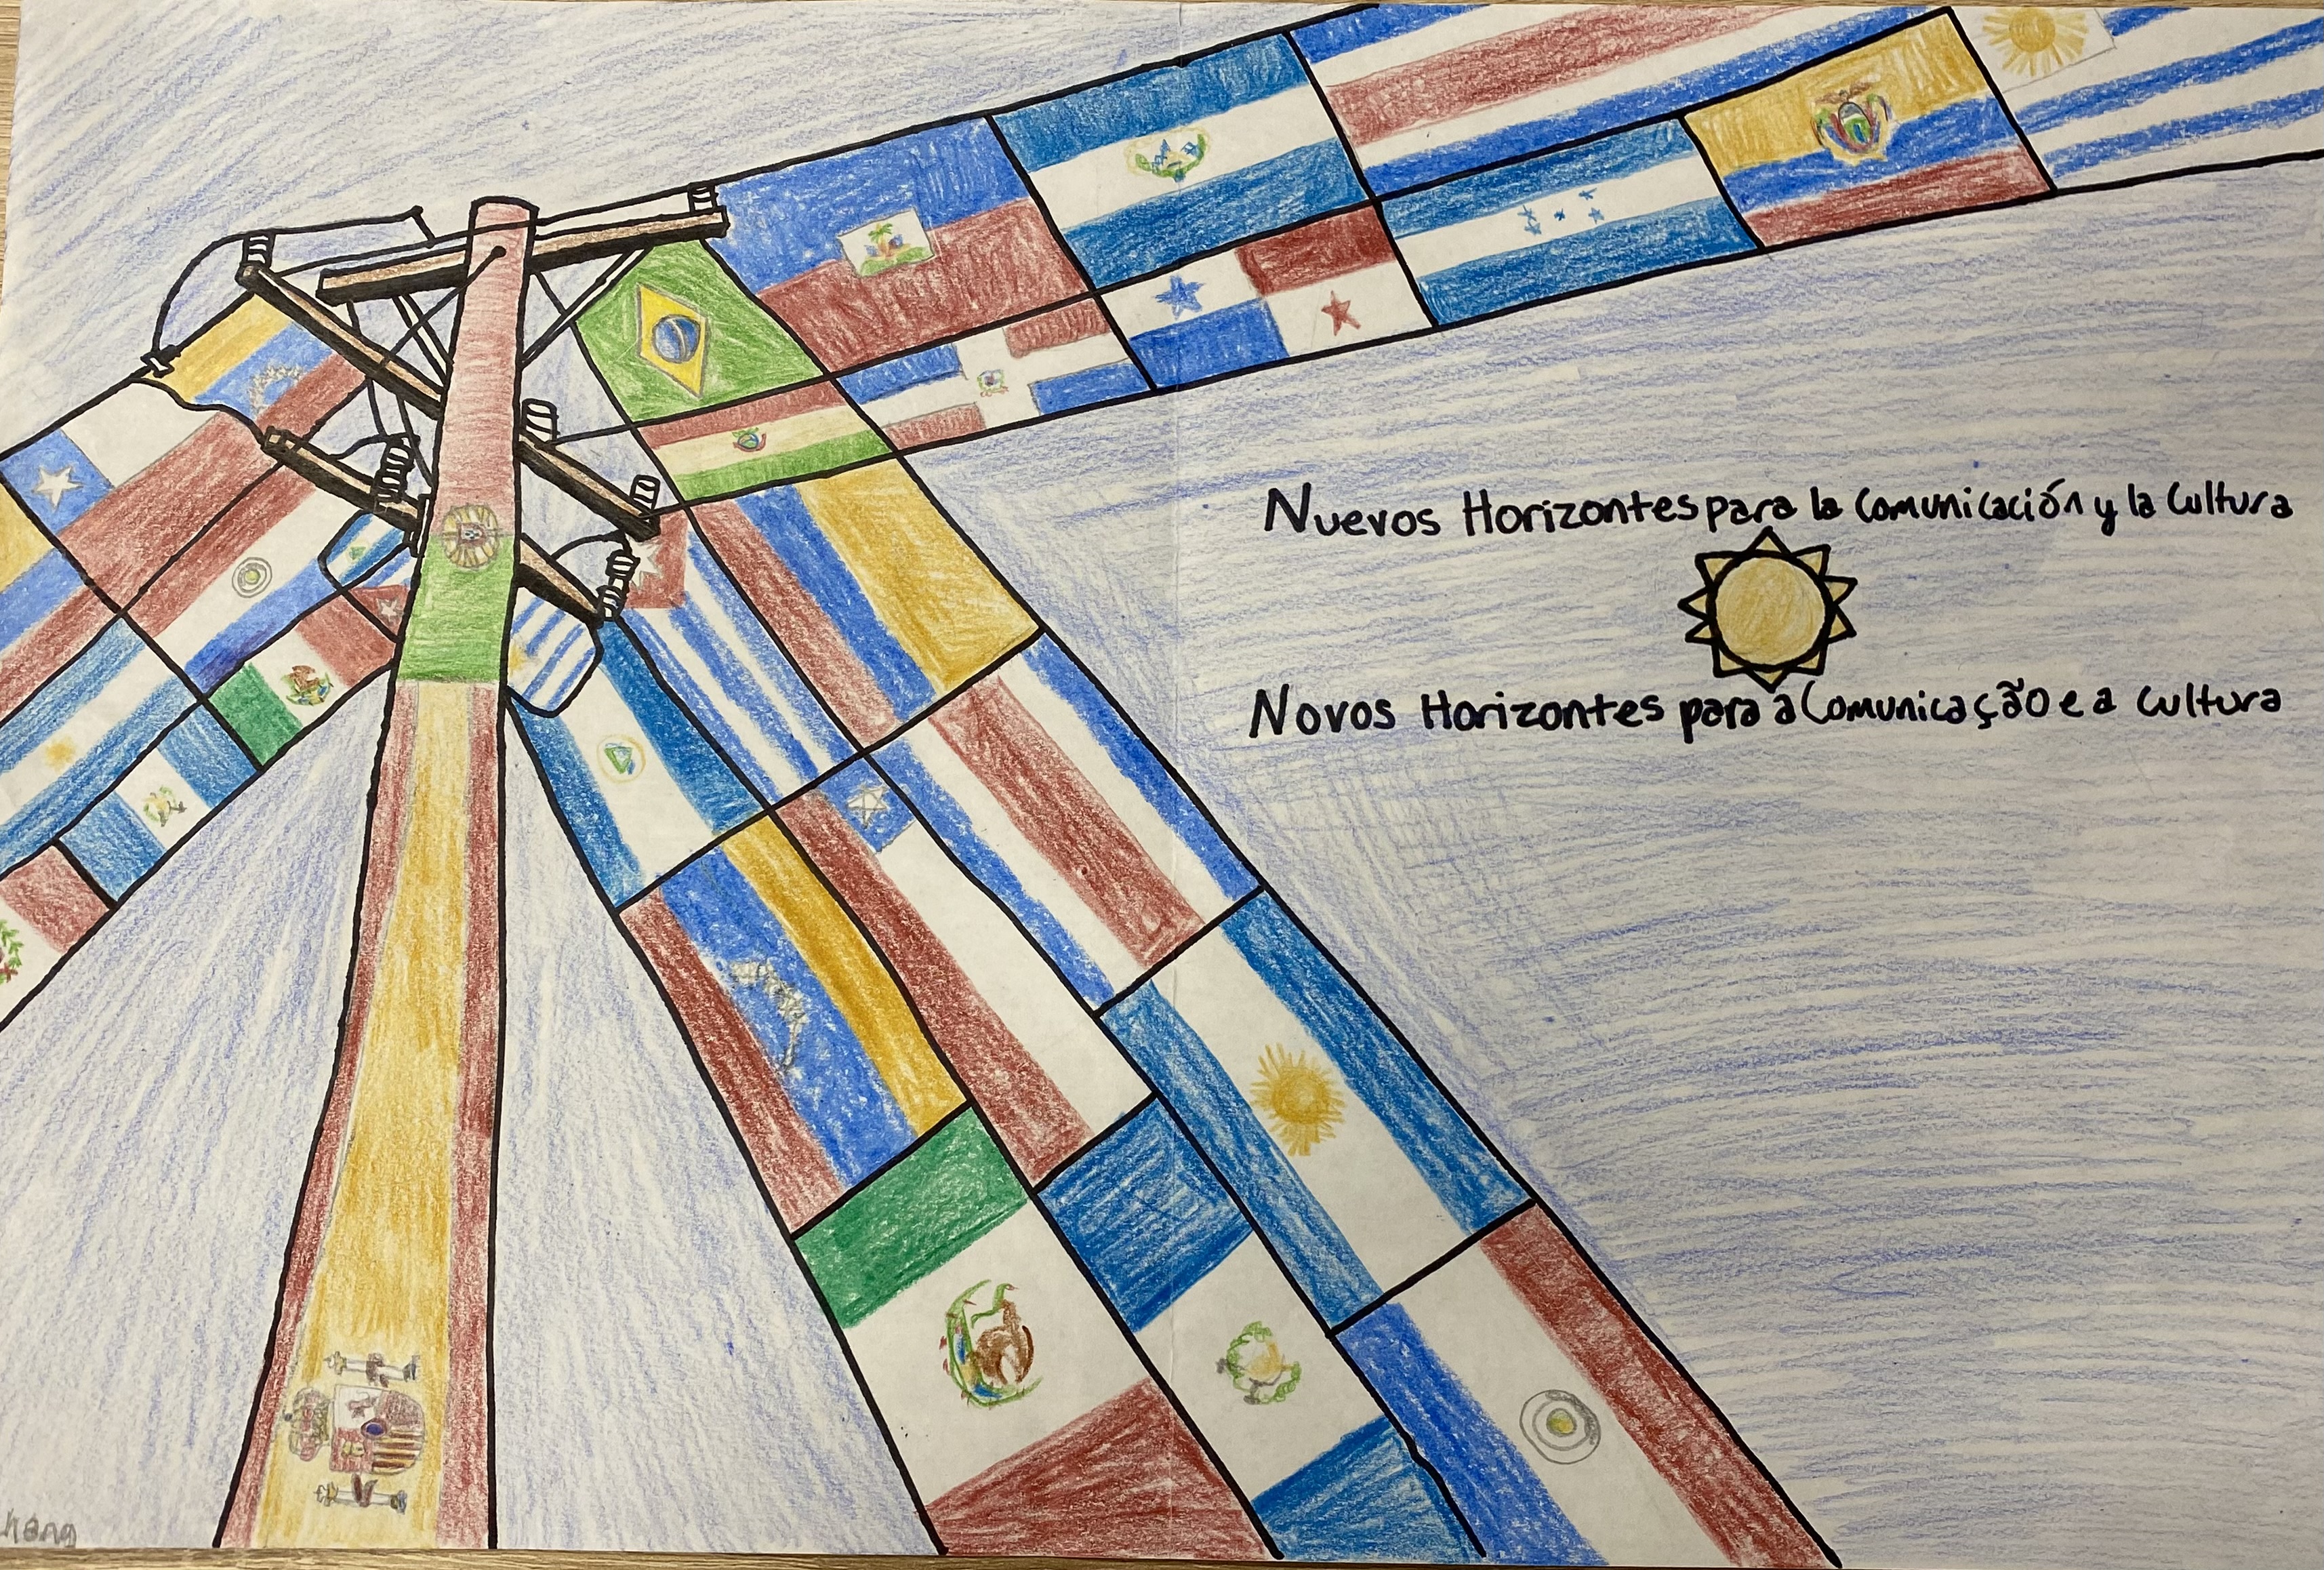 Nuevos Horizontes para la Comunicación y la Cultura
Novos Horizontes para a Comunicação e a Cultura